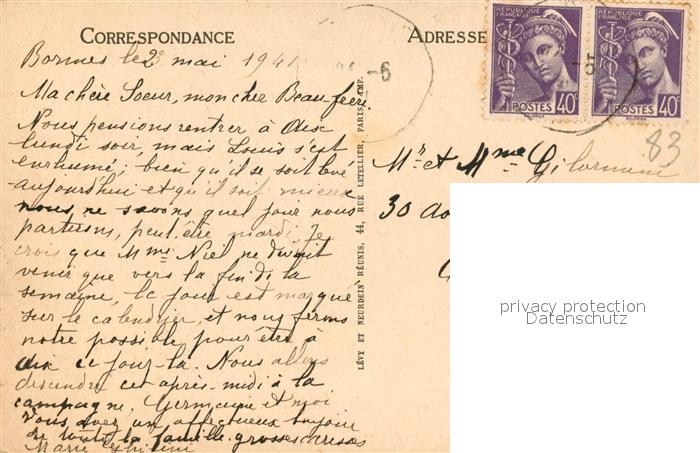 CORRESPONDANCE
ADRESSE
Bormes le 23 mai 1941
Ma chère Soeur, mon cher Beau frère.
Nous pensions rentrer à Aix
lundi soir, mais Louis s'est
enrhumé, bien qu'il se soit levé
aujourd'hui et qu'il soit mieux
nous ne savons quel jour nous
partirons, peut-être mardi. Je
crois que Mme Niel ne devait
venir que vers la fin de la
semaine, le jour est marqué
sur le calendrier, et nous ferons
notre possible pour être à
Aix ce jour-là. Nous allons
descendre cet après-midi à la
campagne, Germaine et moi
Vous avez un affectueux bonjour
de toute la famille. grosses caresses
Marie
LÉVY ET NEURDEIN RÉUNIS, 44, RUE LETELLIER, PARIS. IMP.
RÉPUBLIQUE FRANÇAISE
POSTES 40c
RÉPUBLIQUE FRANÇAISE
POSTES 40c
83
Mr et Mme
30
privacy protection
Datenschutz